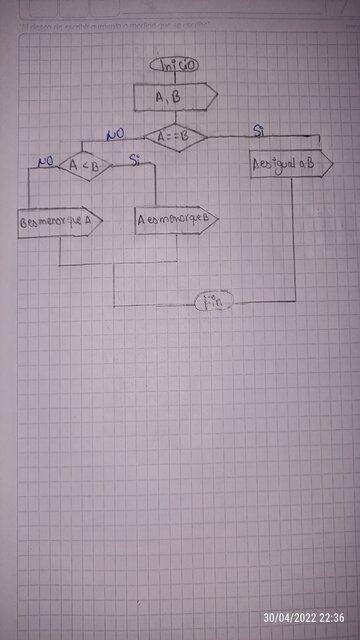 "El deseo de escribir aumenta a medida que se escribe"
Inicio
A, B
A==B
NO
Si
A < B
NO
Si
A es igual a B
B es menor que A
A es menor que B
Fin
30/04/2022 22:36